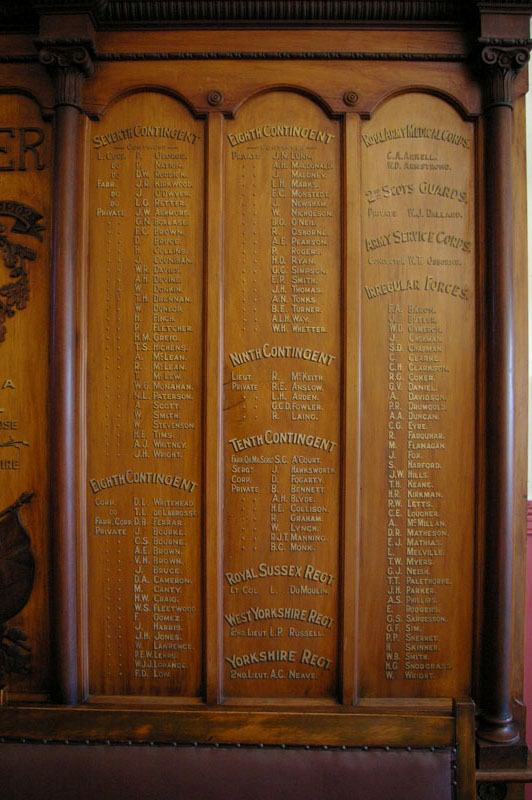 ER
A
OSE
IRE
SEVENTH CONTINGENT
CONTINUED
L. CORP. P. GEORGE.
DO H. NATION.
DO D.W. REDDIEN.
FARR. J.R. KIRKWOOD.
DO J. O'DWYER.
DO L.G. RETTER.
PRIVATE J.W. ASHMORE.
G.N. BORLASE.
F.G. BROWN.
D. BRUCE.
H. COLLINS.
J. COUNIHAN.
W.R. DAVIS.
A.H. DEVINE.
W. DONKIN.
T.H. DRENNAN.
W. DUNLOP.
H. FINCH.
P. FLETCHER.
H.M. GREIG.
T.S. HICHENS.
A. McLEAN.
R. McLEAN.
T. McLEW.
W.G. MONAHAN.
N.L. PATERSON.
A. SCOTT.
W. SMITH.
W. STEVENSON
H.E. TIMS.
A.J. WHITNEY.
J.H. WRIGHT.
EIGHTH CONTINGENT
CORP. D.L. WHITEHEAD.
DO T.L. DE LABROSSE
FARR. CORP. D.B. FERRAR.
PRIVATE J. BOURKE.
C.S. BOURNE.
A.E. BROWN.
V.H. BROWN.
J. BRUCE.
D.A. CAMERON.
M. CANTY.
H.W. CRAIG.
W.S. FLEETWOOD
F. GOMEZ.
J. HARRIS.
J.H. JONES.
W. LAWRENCE.
P.E.W. LEWIS.
W.J.J. LORANGE.
F.D. LOW.
EIGHTH CONTINGENT
CONTINUED
PRIVATE J.N. LUNN.
A.H. MACDONALD.
J. MALONEY.
L.H. MARKS.
E.C. MONSTEDT.
J. NEWSHAM.
W. NICHOLSON.
B.G. O'NEIL.
R. OSBORNE.
A.E. PEARSON.
P. ROGERS.
H.D. RYAN.
G.C. SIMPSON.
E.P. SMITH.
J.H. THOMAS.
A.N. TONKS.
B.E. TURNER.
A.L.H. WAY.
W.H. WHETTER.
NINTH CONTINGENT
LIEUT. R. McKEITH.
PRIVATE R.E. ANSLOW.
L.H. ARDEN.
G.C.D. FOWLER.
R. LAING.
TENTH CONTINGENT
FARR. QR. MR. SERGT. S.C. A'COURT.
SERGT. J. HAWKSWORTH
CORP. D. FOGARTY.
PRIVATE B. BENNETT.
A.H. BLYDE.
H.E. COLLISON.
R. GRAHAM.
W. LYNCH.
R.J.T. MANNING.
B.C. MONK.
ROYAL SUSSEX REGT.
LT COL L. DU MOULIN.
WEST YORKSHIRE REGT
2ND. LIEUT. L.P. RUSSELL.
YORKSHIRE REGT
2ND. LIEUT. A.C. NEAVE.
ROYAL ARMY MEDICAL CORPS.
C.A. ARKELL.
W.D. ARMSTRONG.
2ND SCOTS GUARDS.
PRIVATE W.J. DILLAND.
ARMY SERVICE CORPS.
CONDUCTOR W.T. OSBORNE.
IRREGULAR FORCES.
F.A. BARON.
J. BUTLER.
W.G. CAMERON.
J. CASHMAN.
S.D. CHAPMAN.
C. CLARKE.
C.H. CLARKSON.
R.G. COKER.
G.V. DANIEL.
A. DAVIDSON.
P.R. DRUMGULD.
A.A. DUNCAN.
C.G. EYRE.
R. FARQUHAR.
M. FLANAGAN.
J. FOX.
S. HARFORD.
J.W. HILLS.
T.H. KEANE.
H.R. KIRKMAN.
R.W. LETTS.
C.E. LOUCHER.
A. McMILLAN.
D.R. MATHESON.
E.J. MATHIAS.
L. MELVILLE.
T.W. MYERS.
G.J. NEISH.
T.T. PALETHORPE.
J.H. PARKER.
A.S. PHILIPS.
E. RODGERS.
G.S. SARGESSON.
G.F. SIM.
P.P. SHERNET.
H. SKINNER.
W.B. SMITH.
H.G. SNODGRASS.
W. WRIGHT.